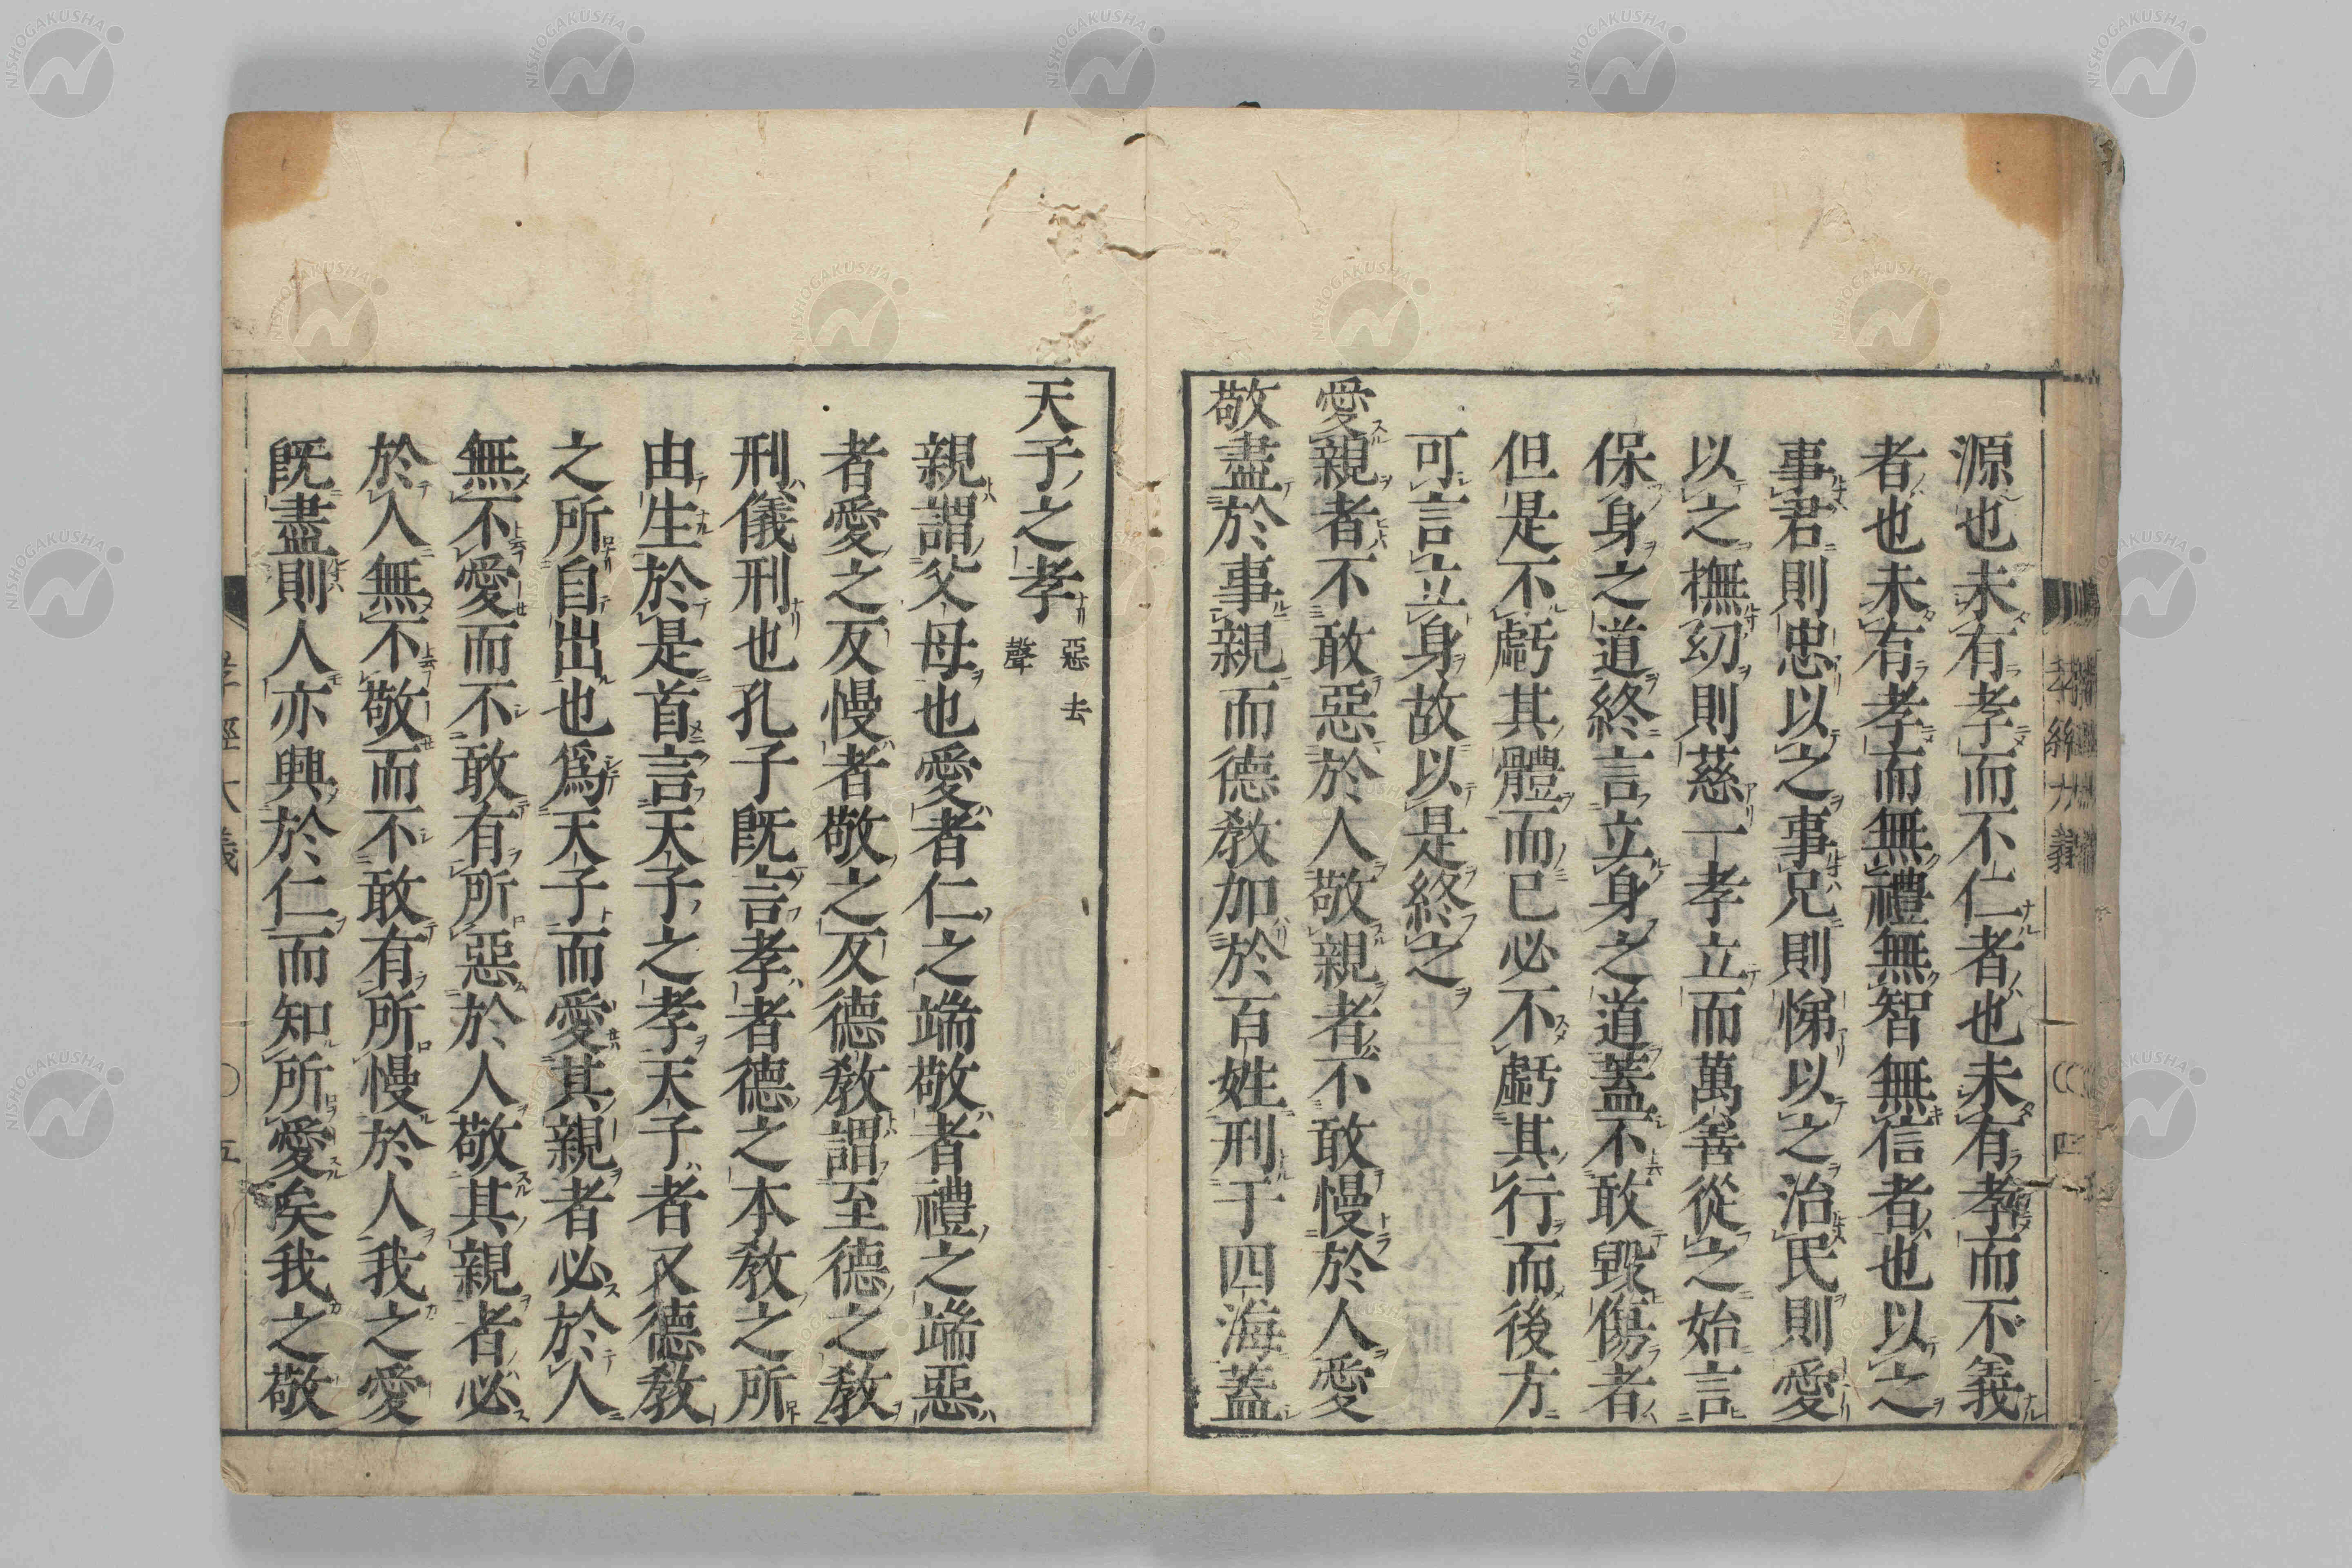 源也未有孝而不仁者也未有孝而不義
者也未有孝而無禮無智無信者也以之
事君則忠以之事兄則悌以之治民則愛
以之撫幼則慈一孝立而萬善從之始言
保身之道終言立身之道蓋不敢毀傷者
但是不虧其體而已必不虧其行而後方
可言立身故以是終之
愛親者不敢惡於人敬親者不敢慢於人愛
敬盡於事親而德敎加於百姓刑于四海蓋
天子之孝
惡去
聲
親謂父母也愛者仁之端敬者禮之端惡
者愛之反慢者敬之反德敎謂至德之敎
刑儀刑也孔子旣言孝者德之本敎之所
由生於是首言天子之孝天子者又德敎
之所自出也爲天子而愛其親者必於人
無不愛而不敢有所惡於人敬其親者必
於人無不敬而不敢有所慢於人我之愛
旣盡則人亦興於仁而知所愛矣我之敬
孝經大義
五
NISHOGAKUSHA